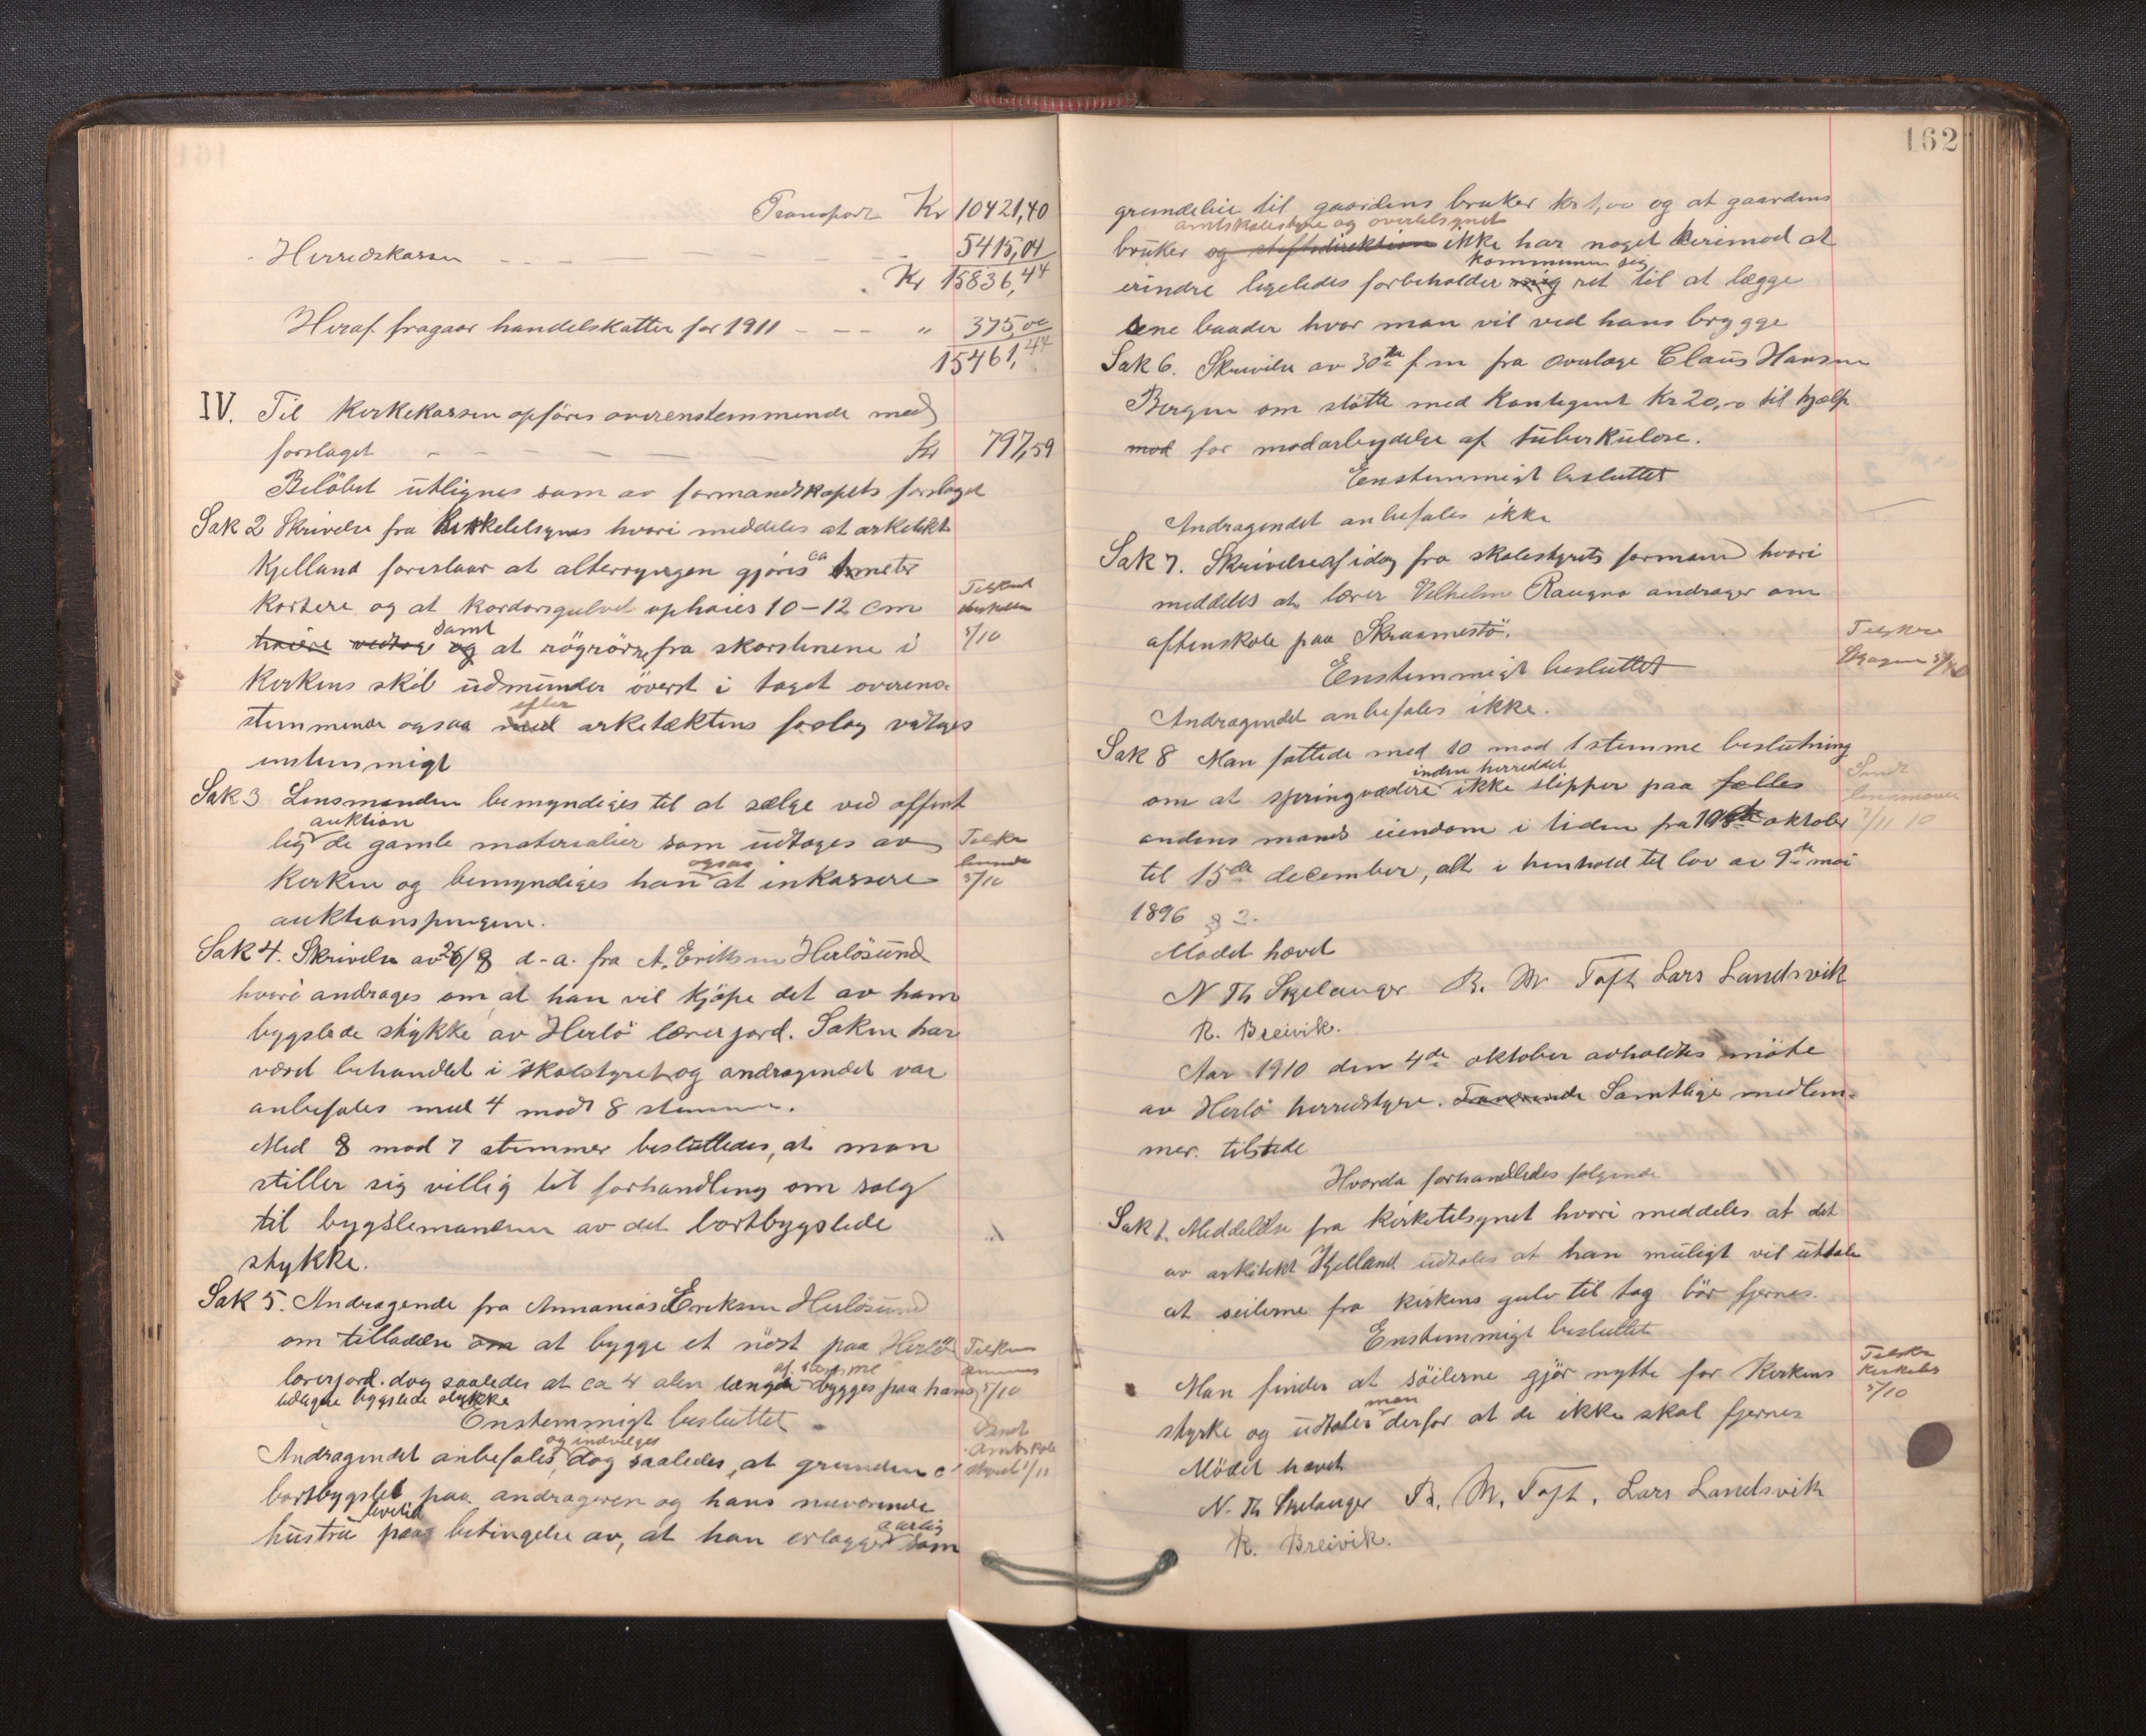 Transport Kr 10421,40
Herredskassen 5415,04
Kr 15836,44
Heraf fragaar handelskatten for 1911 " 375,00
15461,44
IV. Til Kirkekassen opføres overenstemmende med
forslaget Kr 797,59
Beløbet utlignes som av formandskapets forslaget
Sak 2 Skrivelse fra Kirketilsynet hvori meddeles at arkitekt
Kjelland foreslaar at alterryngen gjøres ca 1 meter
kortere og at kordorsgulvet ophøies 10-12 cm
høiere vedtoges og samt at rögrörne fra skorstenene i
Kirkens skib udmunder överst i taget overens-
stemmende ogsaa med efter arketæktens forslag vedtages
enstemmigt
Tilskrevet
5/10
Sak 3 Lensmanden bemyndiges til at sælge ved offent
lig auktion de gamle materialier som udtages av
Kirken og bemyndiges han ogsaa at inkassere
auktionspengene.
Tilskr
5/10
Sak 4. Skrivelse av 26/8 d-a. fra A. Eriksen Herlösund
hvori andrages om at han vil kjöpe det av ham
bygslede stykke av Herlö lærerjord. Saken har
været behandlet i skolestyret og andragendet var
anbefales med 4 mod 8 stemmer.
Med 8 mod 7 stemmer besluttedes, at man
stiller sig villig til forhandling om salg
til bygslemanden av det bortbygslede
stykke.
Sak 5. Andragende fra Annanias Eriksen Herlösund
om tilladelse om at bygge et nöst paa Herlö
lærerjord. dog saaledes at ca 4 alen længde af samme bygges paa hans
tidligere bygslede stykke
Enstemmigt besluttet
Tilskr
5/10
Andragendet anbefales og indvilges, dog saaledes, at grunden
bortbygslet paa andrageren og hans nuværende
hustru levetid paa betingelse av, at han erlægger aarlig som
Sendt
Amtskole
styret 1/11
162
grundleie til gaardens bruker kr 1,00 og at gaardens
bruker og stiftsdirektion amtskolestyre og overtilsynet ikke har noget herimod at
erindre ligeledes forbeholder mig kommunen sig ret til at lægge
sene baader hvor man vil ved hans brygge
Sak 6. Skrivelse av 30te f m fra overlæge Claus Hansen
Bergen om støtte med Kontigent Kr 20,00 til hjælp
mod for modarbeydelse af tuberkulose.
Enstemmigt besluttet
Andragendet anbefales ikke
Sak 7. Skrivelse af idag fra skolestyrets formand hvori
meddeles at lærer Velhelm Raugna andrager om
aftenskole paa Skraamestö.
Enstemmigt besluttet
Andragendet anbefales ikke.
Tilskr
5/10
Sak 8 Man fattede med 10 mod 1 stemme beslutning
om at springvædere inden herreddet ikke slipper paa fælles
andens mands eiendom i tiden fra 1ste oktober
til 15de december, alt i henhold til lov av 9de mai
1896 § 2.
Sendt
lensmanden
1/11 10
Mödet hævet
N Th Skjelanger R. M. Toft Lars Landsvik
R. Breivik.
Aar 1910 den 4de oktober avholdtes möte
av Herlö herredstyre. Fraværende Samtlige medlem-
mer tilstede
Hvorda forhandledes følgende
Sak 1. Meddelelse fra kirketilsynet hvori meddeles at det
av arkitekt Kjelland udtales at han muligt vil uttale
at seilerne fra kirkens gulv til tag bör fjernes.
Enstemmigt besluttet
Man finder at söilerne gjör nytte for Kirkens
styrke og udtaler man derfor at de ikke skal fjernes
Tilskr
Kirketils
5/10
Mödet hævet
N. Th Skjelanger R. M. Toft. Lars Landsvik
R. Breivik.